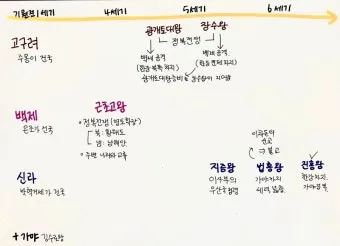 기원전1세기 4세기 5세기 6세기
고구려
주몽이 건국
광개토대왕 장수왕
정복전쟁
백제 공격
(한강 북쪽 차지)
백제 공격
광개토대왕릉비 장수왕이 지어줌
백제
온조가 건국
근초고왕
정복전쟁(영토확장)
북: 황해도
남: 남해안
주변 나라와 교류
신라
박혁거세가 건국
지증왕
이사부의
우산국 정벌
법흥왕
이차돈의
순교
⇒ 불교
가야까지
세력 넓힘
진흥왕
한강차지,
가야정복
+ 가야 김수로왕